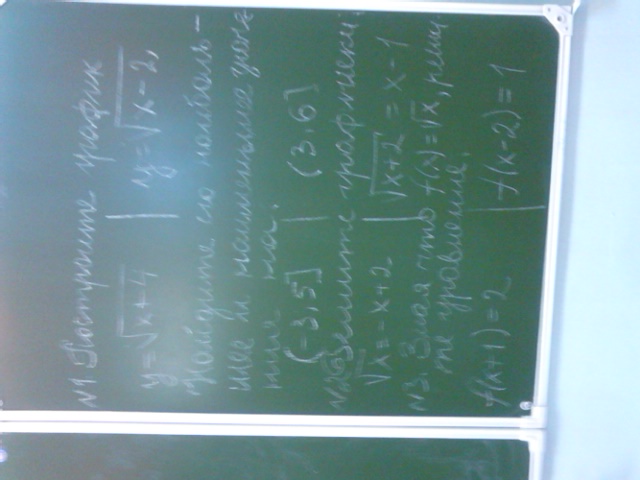 №1 Постройте график
y=√x+4 | y=√x-2,
Найдите его наиболь-
шее и наименьшее знач
ние на.
(-3,5] | (3,6]
№2 Решите графически
√x=-x+2 | √x+2 = x-1
№3. Зная что f(x)=√x, реши
те уравнение.
f(x+1)=2 | f(x-2)=1